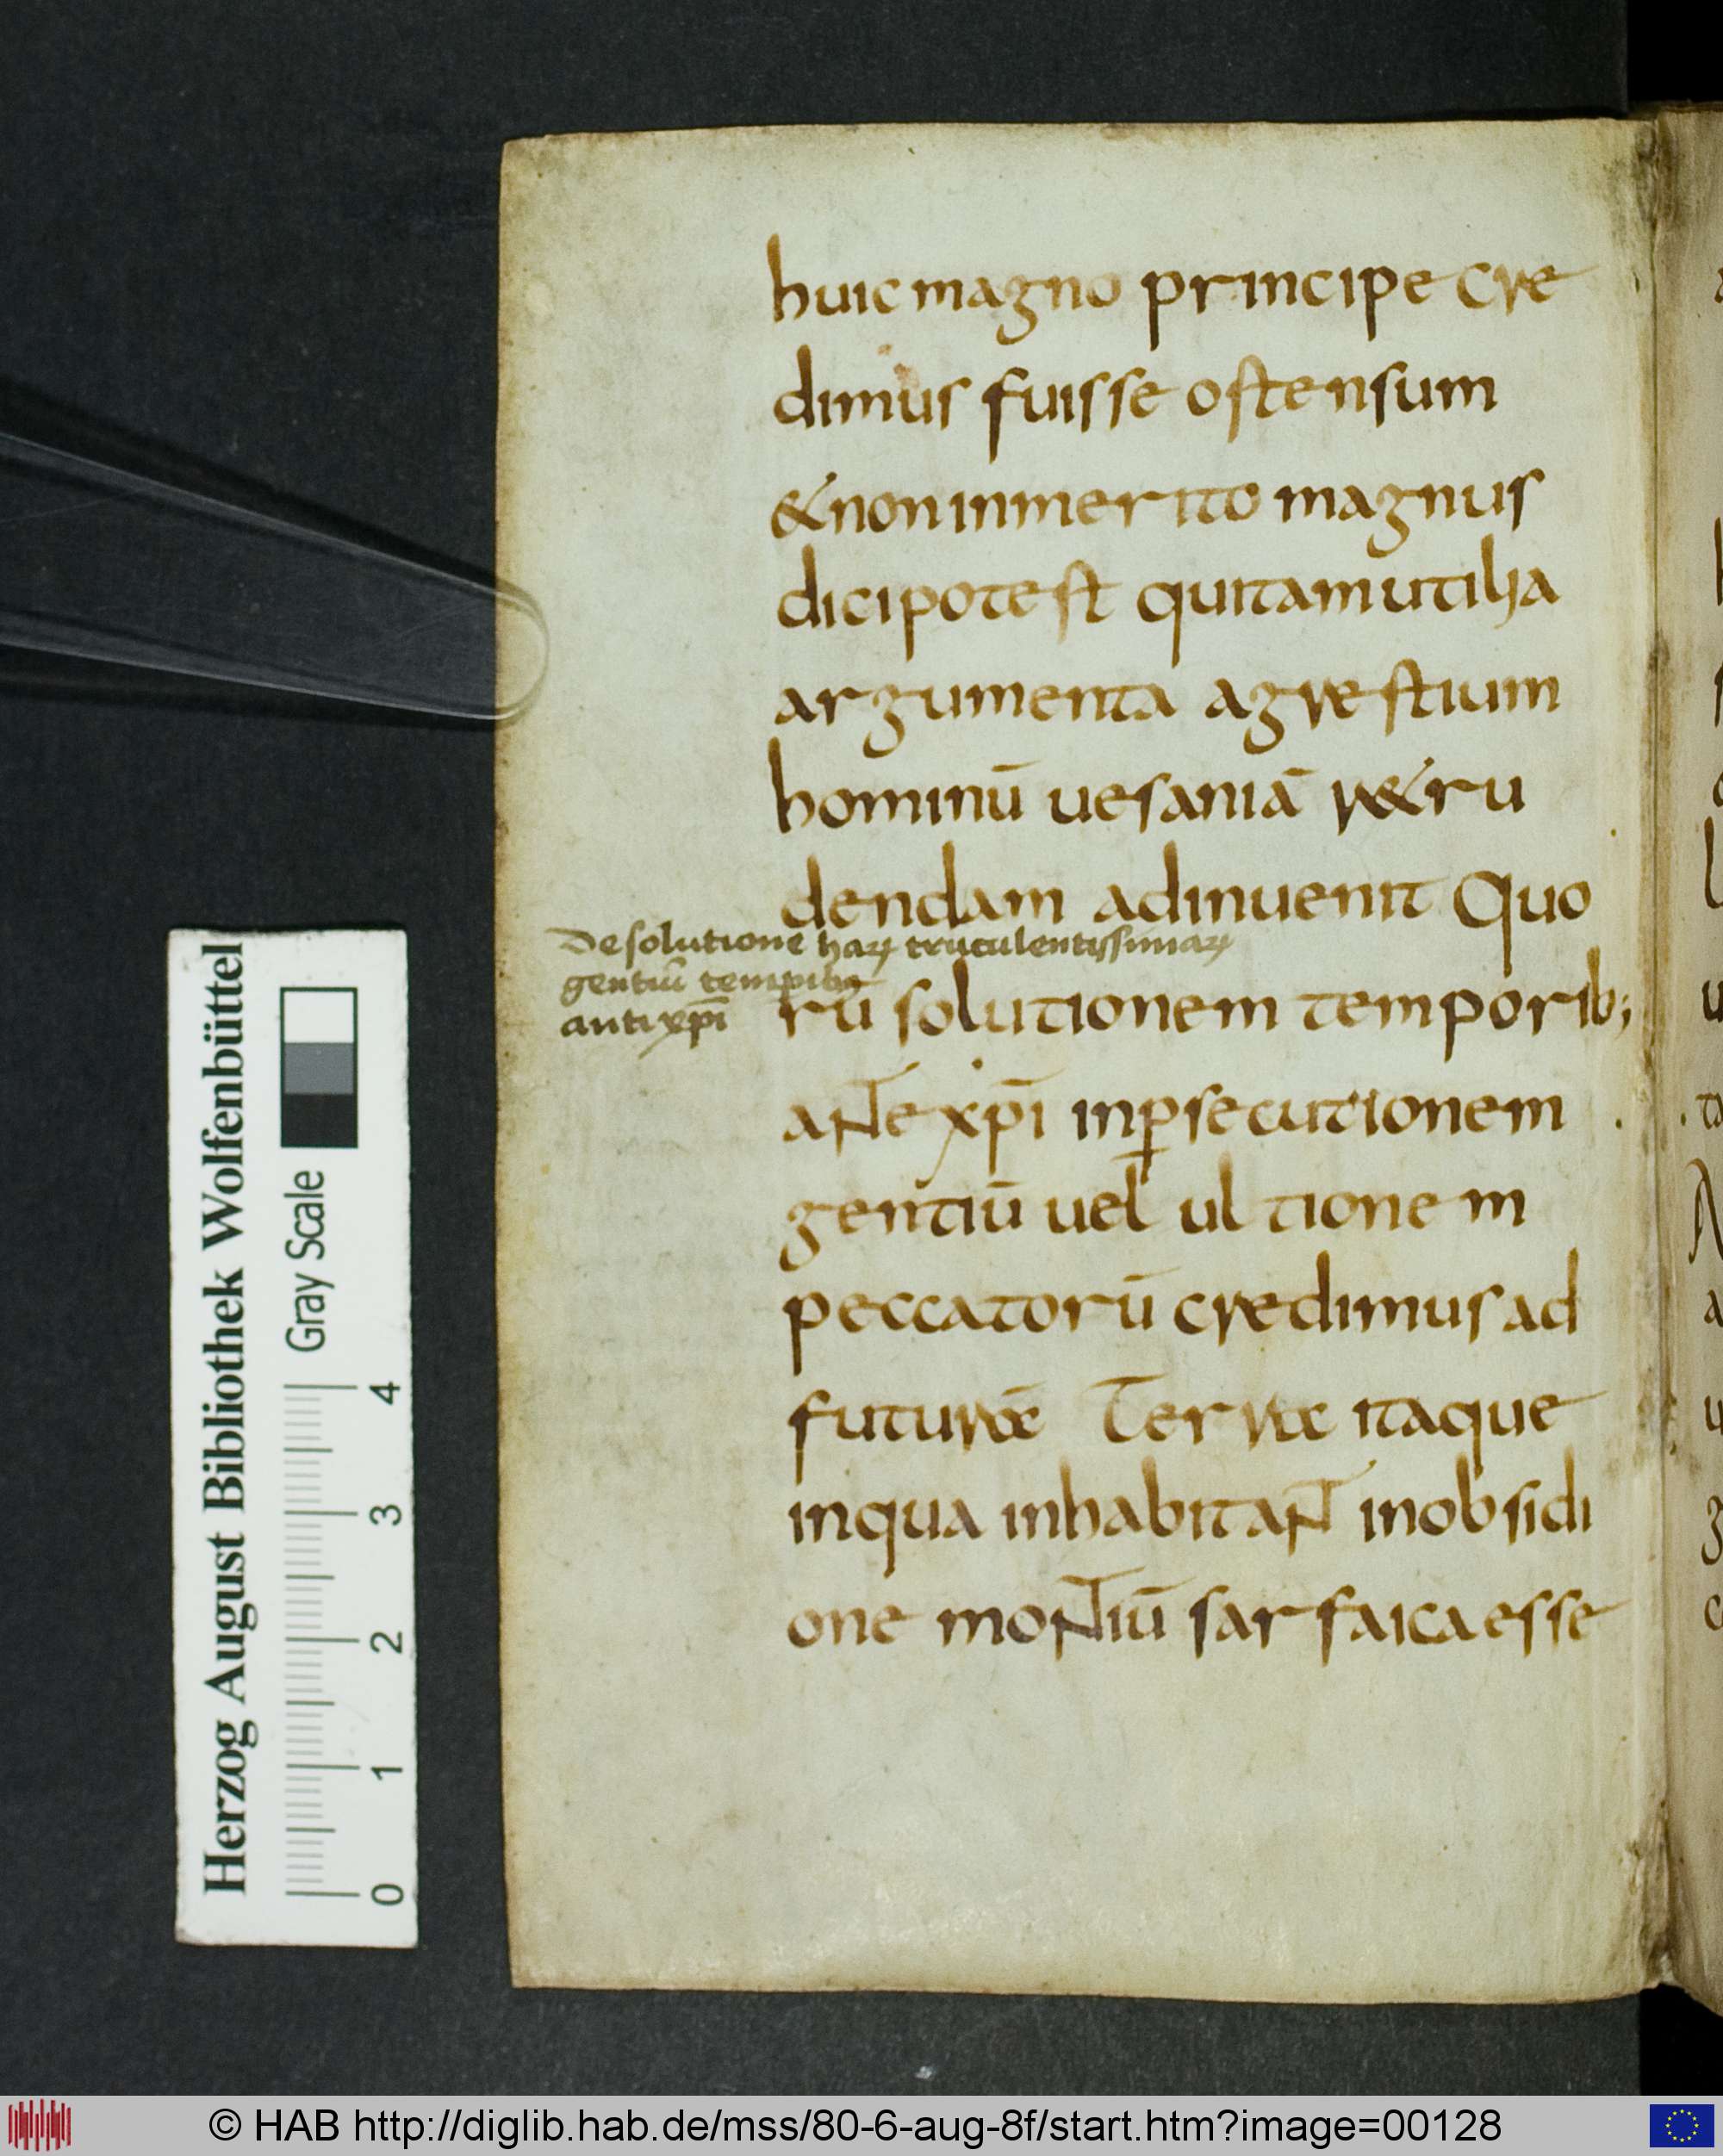 huic magno principe cre
dimus fuisse ostensum
& non inmerito magnus
dici potest qui tam utilia
argumenta agrestium
hominū uesaniā r&ru
dendam adinuenit Quo
rū solutionem temporib;
aNTexp̄i inꝑsecutionem
gentiū uel ultionem
peccatorū credimus ad
futurā Terra itaque
inqua inhabitaNT inobsidi
one moNTiū sarfaica esse
De solutione haꝝ truculentissimaꝝ
gentiū temꝑibꝫ
antixp̄i
Herzog August Bibliothek Wolfenbüttel
Gray Scale
0 1 2 3 4
© HAB http://diglib.hab.de/mss/80-6-aug-8f/start.htm?image=00128